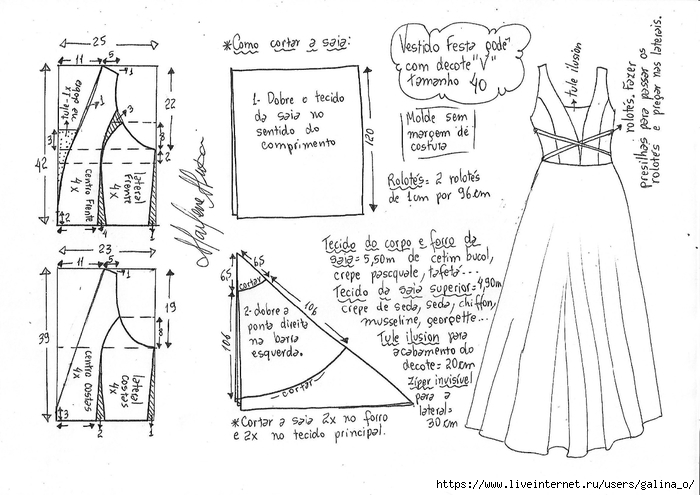 25
11
5
1
tule-1x
na dobra
3
1
22
3
8
2
42
centro frente
4x
lateral
frente
4x
2
4
1
23
11
5
1
19
8
39
centro costas
4x
lateral
costas
4x
3
2
1
*Como cortar a saia:
1- Dobre o tecido
da saia no
sentido do
comprimento
120
65
65
cortar
106
106
2-dobre a
ponta direita
na barra
esquerda.
cortar
*Cortar a saia 2x no forro
e 2x no tecido principal.
Vestido Festa podê
com decote "V"
tamanho 40
Molde sem
margem de
costura
Rolotês= 2 rolotês
de 1cm por 96cm
Tecido do corpo e forro da
saia=5,50m de cetim bucol,
crepe pascquale, tafetá...
Tecido da saia superior=4,90m
crepe de seda, seda, chiffon,
musseline, georgette...
Tule ilusion para
acabamento do
decote=20cm
Zíper invisível
para a
lateral=
30cm
tule ilusion
rolotês. Fazer
presilhas para passar os
rolotês e pregar nas laterais.
https://www.liveinternet.ru/users/galina_o/